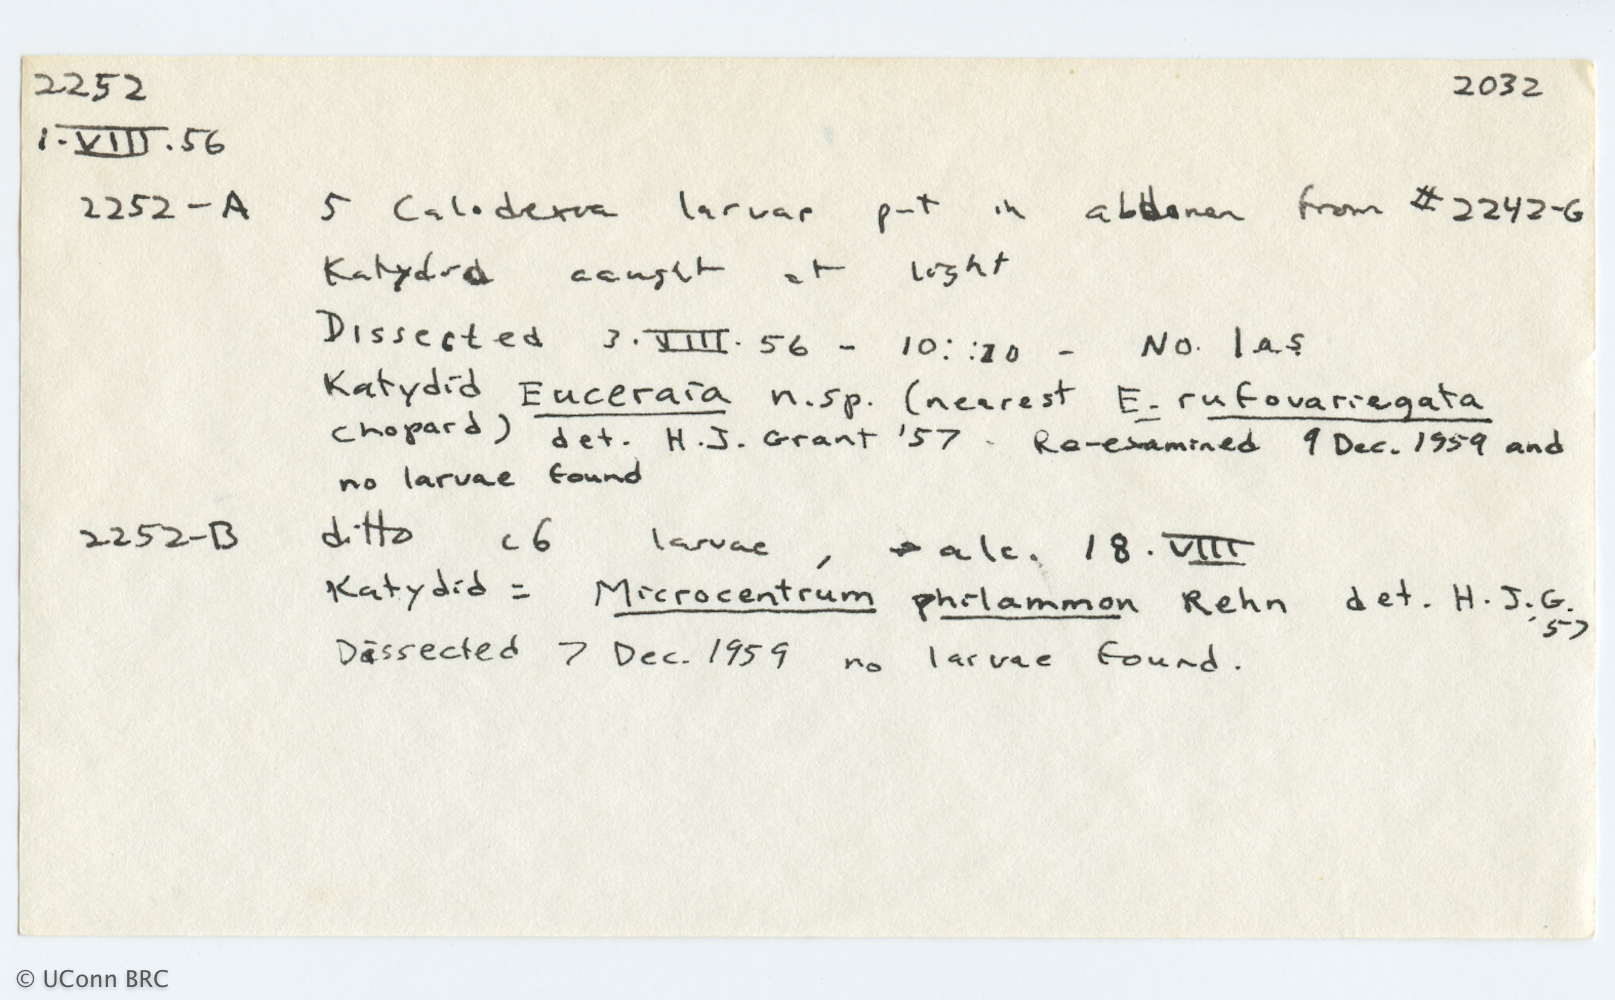 2252 2032
1.VIII.56
2252-A 5 Calodexia larvae put in abdomen from #2242-G
Katydid caught at light
Dissected 3.VIII.56 - 10::20 - No las
Katydid Euceraia n.sp. (nearest E. rufovariegata
Chopard) det. H.J. Grant '57 - Re-examined 9 Dec. 1959 and
no larvae found
2252-B ditto c6 larvae, → alc. 18.VIII
Katydid = Microcentrum philammon Rehn det. H.J.G.
'57
Dissected 7 Dec. 1959 no larvae found.
© UConn BRC